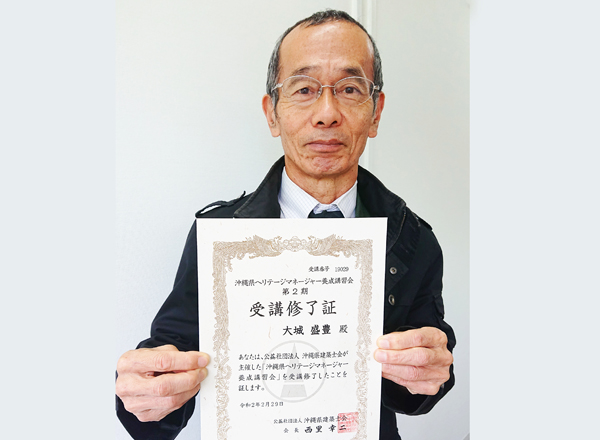 受講番号 19029
沖縄県ヘリテージマネージャー養成講習会
第2期
受講修了証
大城 盛豊 殿
あなたは、公益社団法人 沖縄県建築士会が
主催した「沖縄県ヘリテージマネージャー
養成講習会」を受講修了したことを
証します。
令和2年2月29日
公益社団法人 沖縄県建築士会
会長 西里 幸二